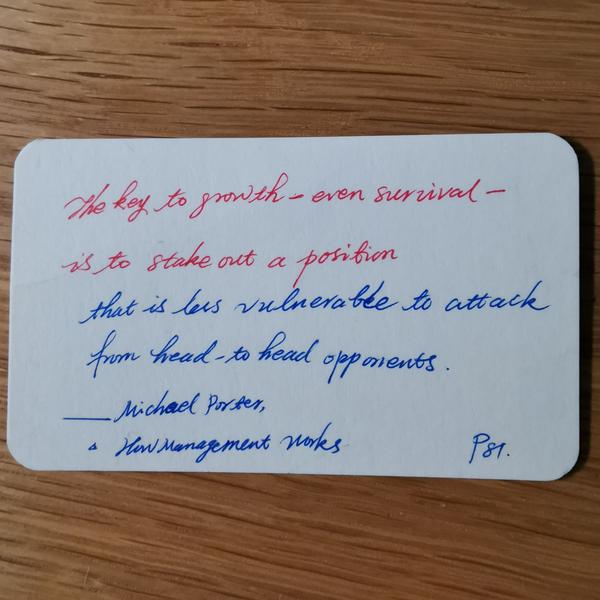 The key to growth – even survival –
is to stake out a position
that is less vulnerable to attack
from head-to head opponents.
—— Michael Porter,
△ How Management Works P81.